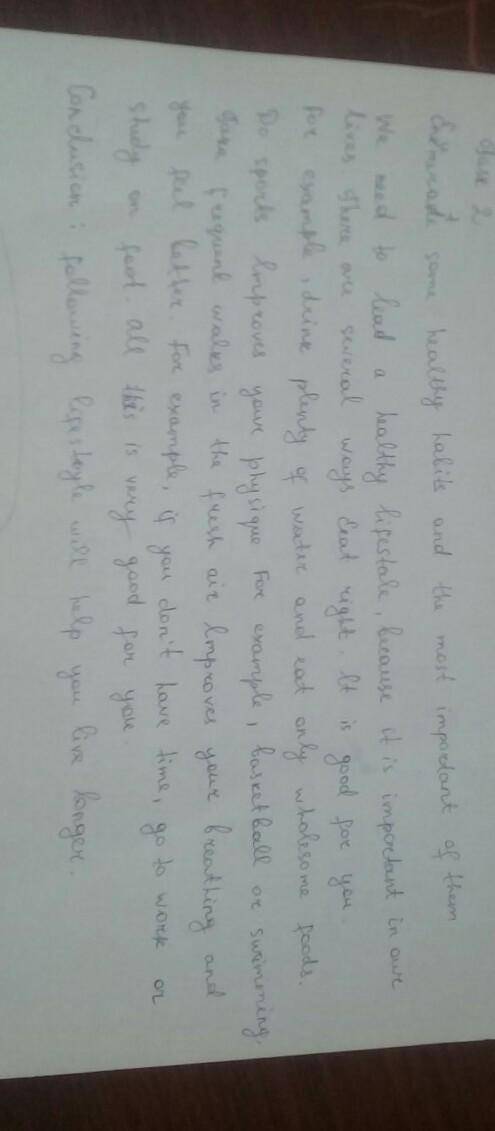 2
some healthy habits and the most important of them
We need to lead a healthy lifestale, because it is important in our
lives. There are several ways Eat right. It is good for you.
For example, drink plenty of water and eat only wholesome foods.
Do sports Improves your physique For example, basketball or swimming.
Take frequent walks in the fresh air Improves your breathing and
you feel better. For example, if you don't have time, go to work or
study on foot. All this is very good for you.
Conclusion: following lifesteyle will help you live longer.